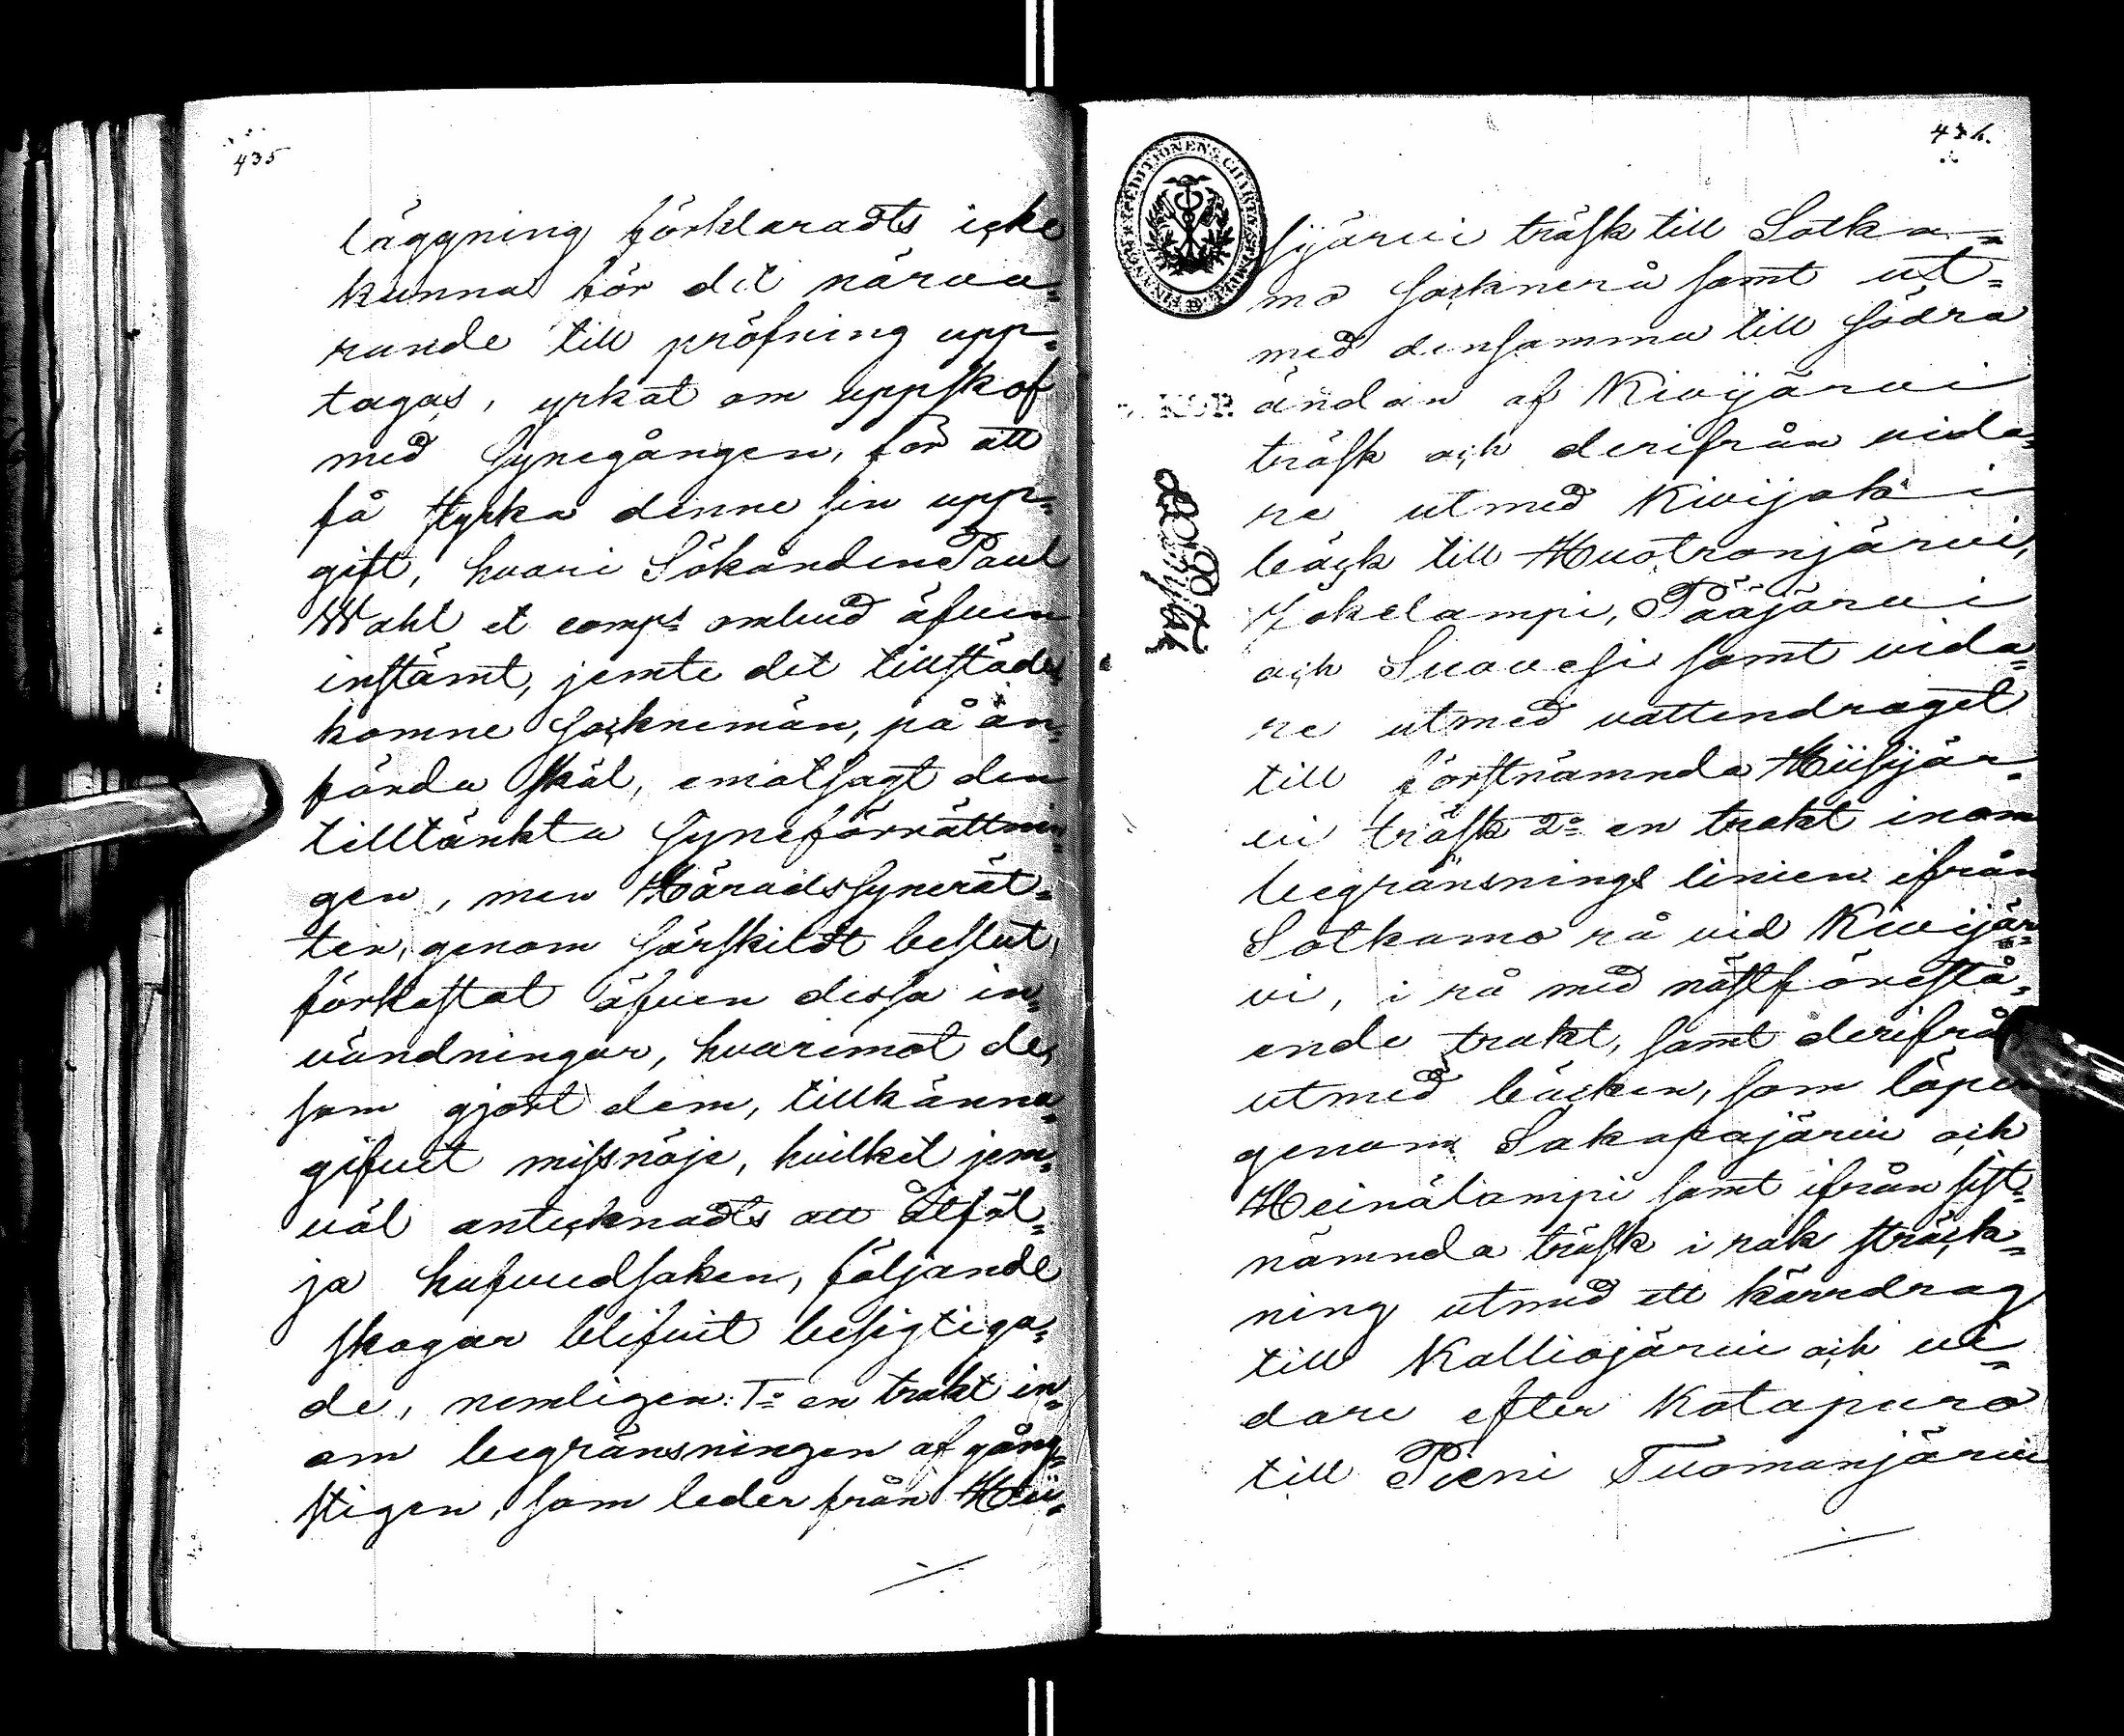 435
läggning förklaradts icke
kunna för det närva=
rande till pröfning upp=
tagas, yrkat om uppskof
med Synegången, för att
få styrka denne sin upp=
gift, hvari Sökanden Paul
Wahl et comps ombud äfven
instämt, jemte det tillstädes
komne Socknemän, på an=
förda skäl, emotsagt den
tilltänkta Syneförrättnin=
gen, men Häradssynerät=
ten, genom särskildt beslut,
förkastat äfven dessa in=
vändningar, hvaremot de,
som gjort dem, tillkänna=
gifvit missnöje, hvilket jem=
väl antecknadts att åtföl=
ja hufvudsaken, följande
skogar blifvit besigtiga=
de, nemligen: 1o en trakt in=
om begränsningen af gång=
stigen, som leder från Hii=
436.
FINANCE EXPEDITIONENS CHARTÆ STÄMPEL
sijärvi träsk till Sotka=
mo socknerå samt ut=
med densamma till södra
ändan af Kivijärvi
träsk och derifrån vida=
re utmed Kivijoki
bäck till Huotronjärvi,
Jokelampi, Pääjärvi
och Suovesi samt vida=
re utmed vattendraget
till förstnämnda Hiisijär=
vi träsk 2o en trakt inom
begränsnings linien ifrån
Sotkamo rå vid Kivijär=
vi, i rå med nästförestå=
ende trakt, samt derifrån
utmed bäcken, som löper
genom Sakarajärvi och
Heinälampi samt ifrån sist=
nämnda träsk i rak sträck=
ning utmed ett kärrdrag
till Kalliojärvi och vi=
dare efter Kotapuro
till Pieni Tuomanjärvi